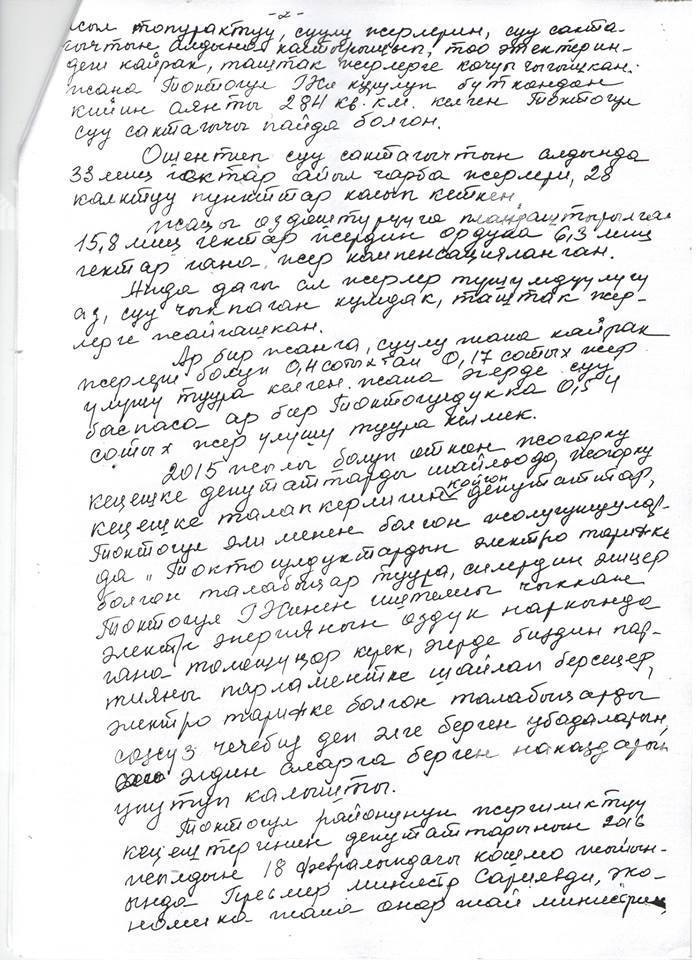 -2-
асыл топурактуу, суулу жерлерин, суу сакта-
гычтын алдында калтырышып, тоо этектерин-
деги кайрак, таштак жерлерге көчүп чыгышкан.
жана Токтогул ГЭСи курулуп бүткөндөн
кийин аянты 284 кв. км. келген Токтогул
суу сактагычы пайда болгон.
Ошентип суу сактагычтын алдында
33 миң гектар айыл чарба жерлери, 28
калктуу пункттар калып кеткен,
жаңы өздөштүрүүгө пландаштырылган
15,8 миң гектар жердин ордуна 6,3 миң
гектар гана жер компенсацияланган.
Анда дагы ал жерлер түшүмдүүлүгү
аз, суу чыкпаган кумдак, таштак жер-
лерге жайгашкан.
Ар бир жанга, суулу жана кайрак
жерлери болуп 0,4 сотыхтан 0,17 сотых жер
улушу туура келген. жана эгерде суу
баспаса ар бир Токтогулдукка 0,54
сотых жер улушу туура келмек.
2015 жылы болуп өткөн жогорку
кеңешке депутаттарды шайлоодо, жогорку
кеңешке талапкерлигин койгон депутаттар,
Токтогул эли менен болгон жолугушуулар-
да „Токтогулдуктардын электро тарифке
болгон талабыңар туура, силердин жиңер
Токтогул ГЭСинен иштелип чыккан
электр энергиянын өздүк наркында
гана төлөшүңөр керек, эгерде биздин пар-
тияны парламентке шайлап берсеңер,
электро тарифке болгон талабыңарды
сөзсүз чечебиз деп элге берген убадаларын,
элдин аларга берген наказдарын
унутуп калышты.
Токтогул районунун жергиликтүү
кеңештеринин депутаттарынын 2016
жылдын 18 февралындагы кошмо жыйын-
ында Премьер министр Сариевди, эко-
номика жана өнөр жай министрин,